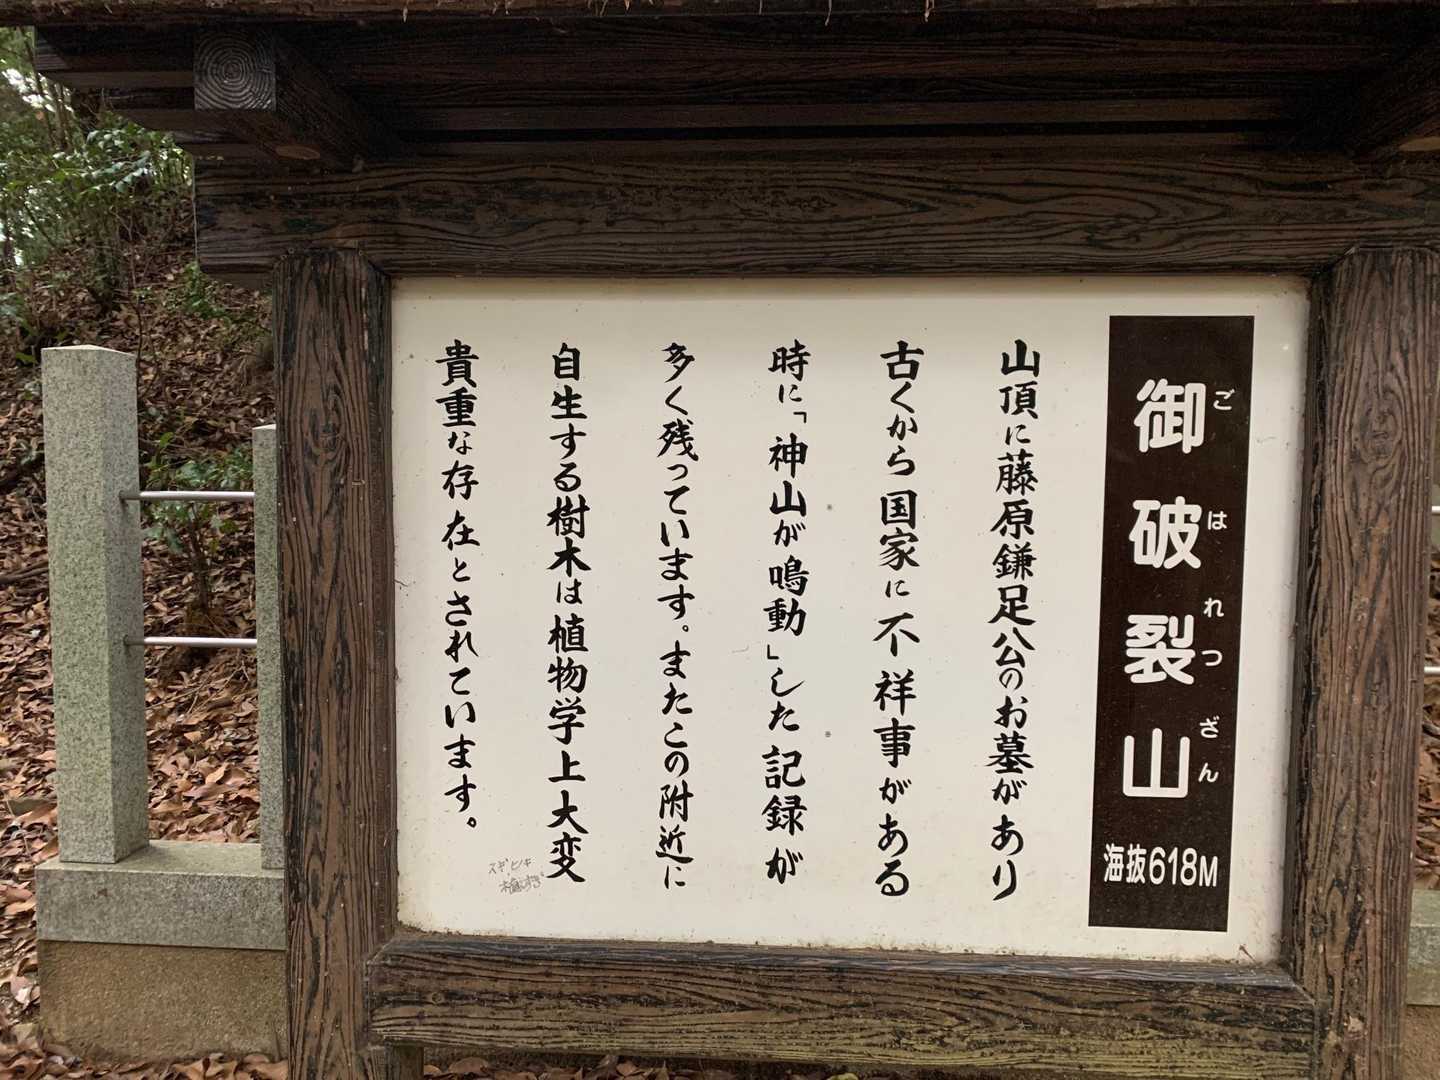 御破裂山
ごはれつざん
海抜618M
山頂に藤原鎌足公のお墓があり
古くから国家に不祥事がある
時に「神山が鳴動」した記録が
多く残っています。またこの附近に
自生する樹木は植物学上大変
貴重な存在とされています。
スギ ヒノキ